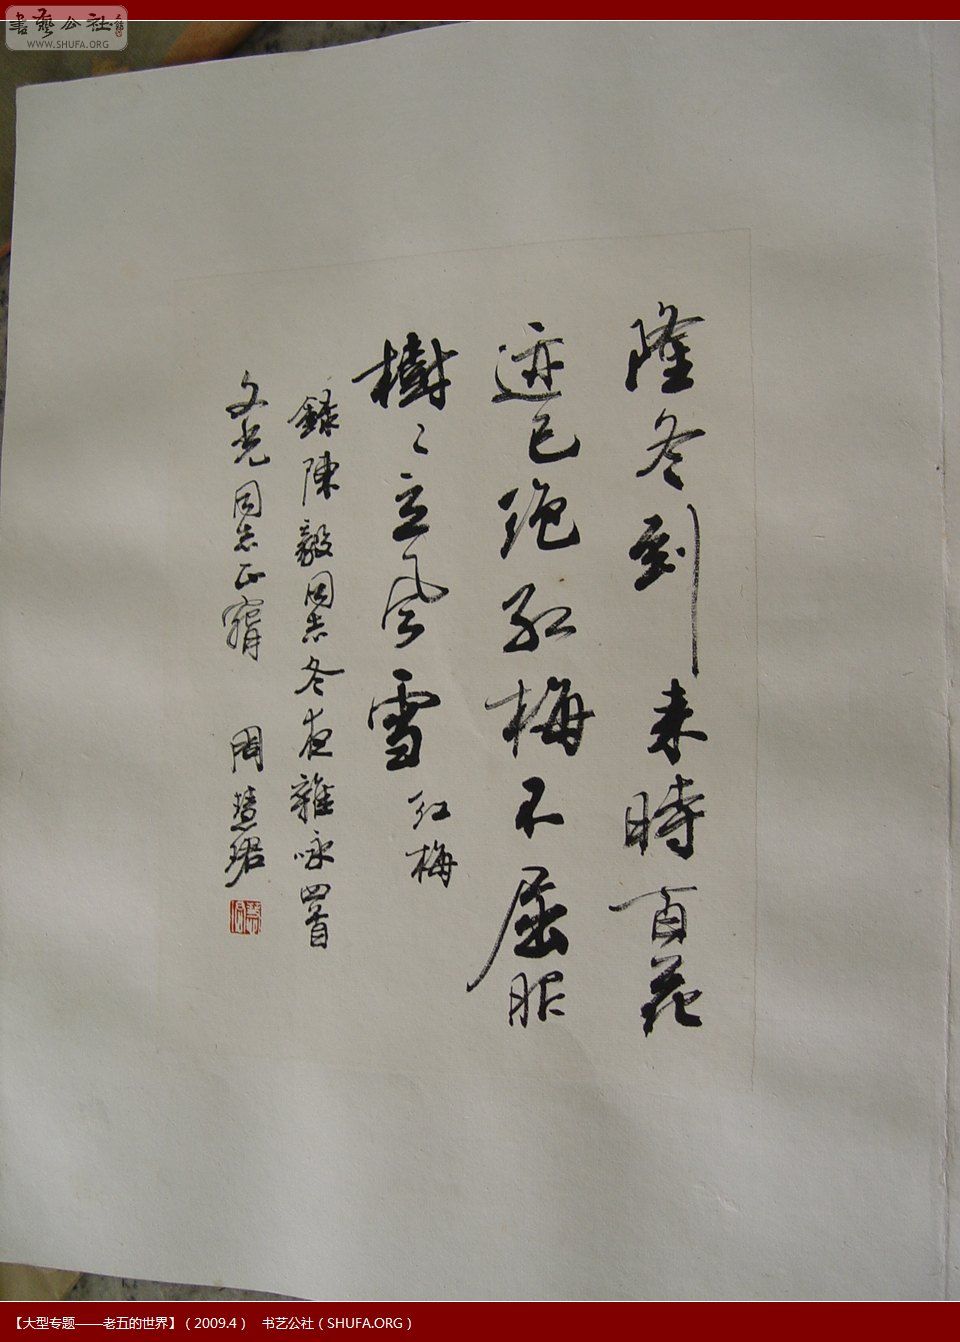 書藝公社
WWW.SHUFA.ORG
隆冬到来時百花
迹已絶紅梅不屈服
樹〻立風雪紅梅
録陳毅同志冬夜雜咏四首
文光同志正窅
周慧珺
【大型专题——老五的世界】（2009.4） 书艺公社（SHUFA.ORG）